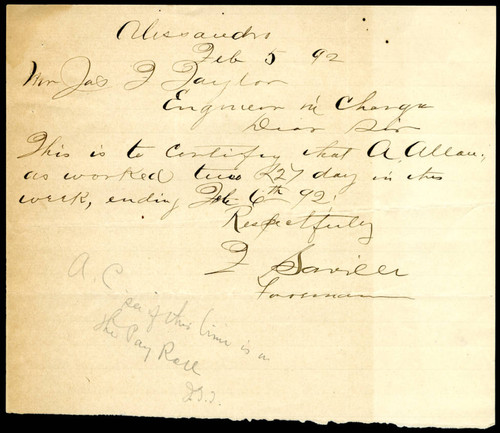 Alissandro
Feb 5 92
Mr Jas T Taylor
Engineer in Charge
Dear Sir
This is to Certify that A. Allan,
as worked two (2) day in this
week, ending Feb 6th 92.
Respectfully
F Saviller
Foreman
A. C.
see if this time is on
the Pay Roll